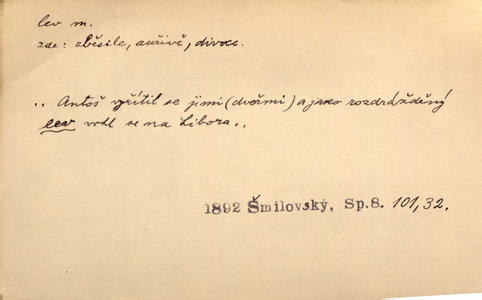 lev m.
zde: zběsile, zuřivě, divoce.
„ Antoš vyřítil se jimi (dveřmi) a jako rozdrážděný
lev vrhl se na Libora.„
1892 Šmilovský, Sp.8. 101,32.